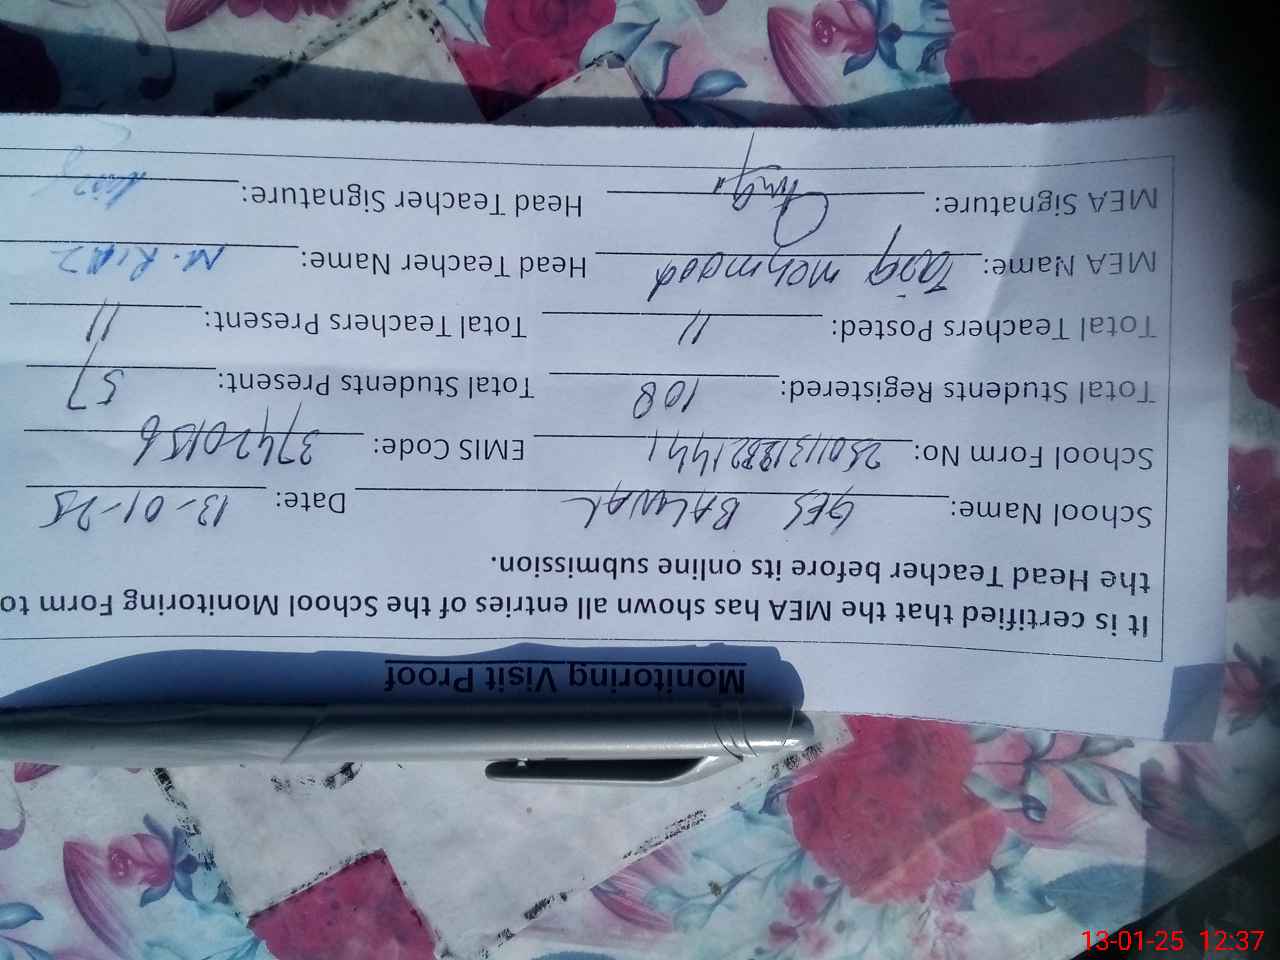 Monitoring Visit Proof
It is certified that the MEA has shown all entries of the School Monitoring Form to
the Head Teacher before its online submission.
School Name: GES BALWAL Date: 13-01-25
School Form No: EMIS Code: 37420156
Total Students Registered: 108 Total Students Present: 57
Total Teachers Posted: 11 Total Teachers Present: 11
MEA Name: Tariq mehmood Head Teacher Name: M. RIAZ
MEA Signature: Head Teacher Signature:
13-01-25 12:37